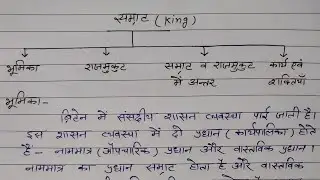 सम्राट (King)
भूमिका राजमुकुट सम्राट व राजमुकुट कार्य एवं
में अन्तर शक्तियाँ
भूमिका:-
ब्रिटेन में संसदीय शासन व्यवस्था पाई जाती है।
इस शासन व्यवस्था में दो प्रधान (कार्यपालिका) होते
है - नाममात्र (औपचारिक) प्रधान और वास्तविक प्रधान।
नाममात्र का प्रधान सम्राट होता है और वास्तविक